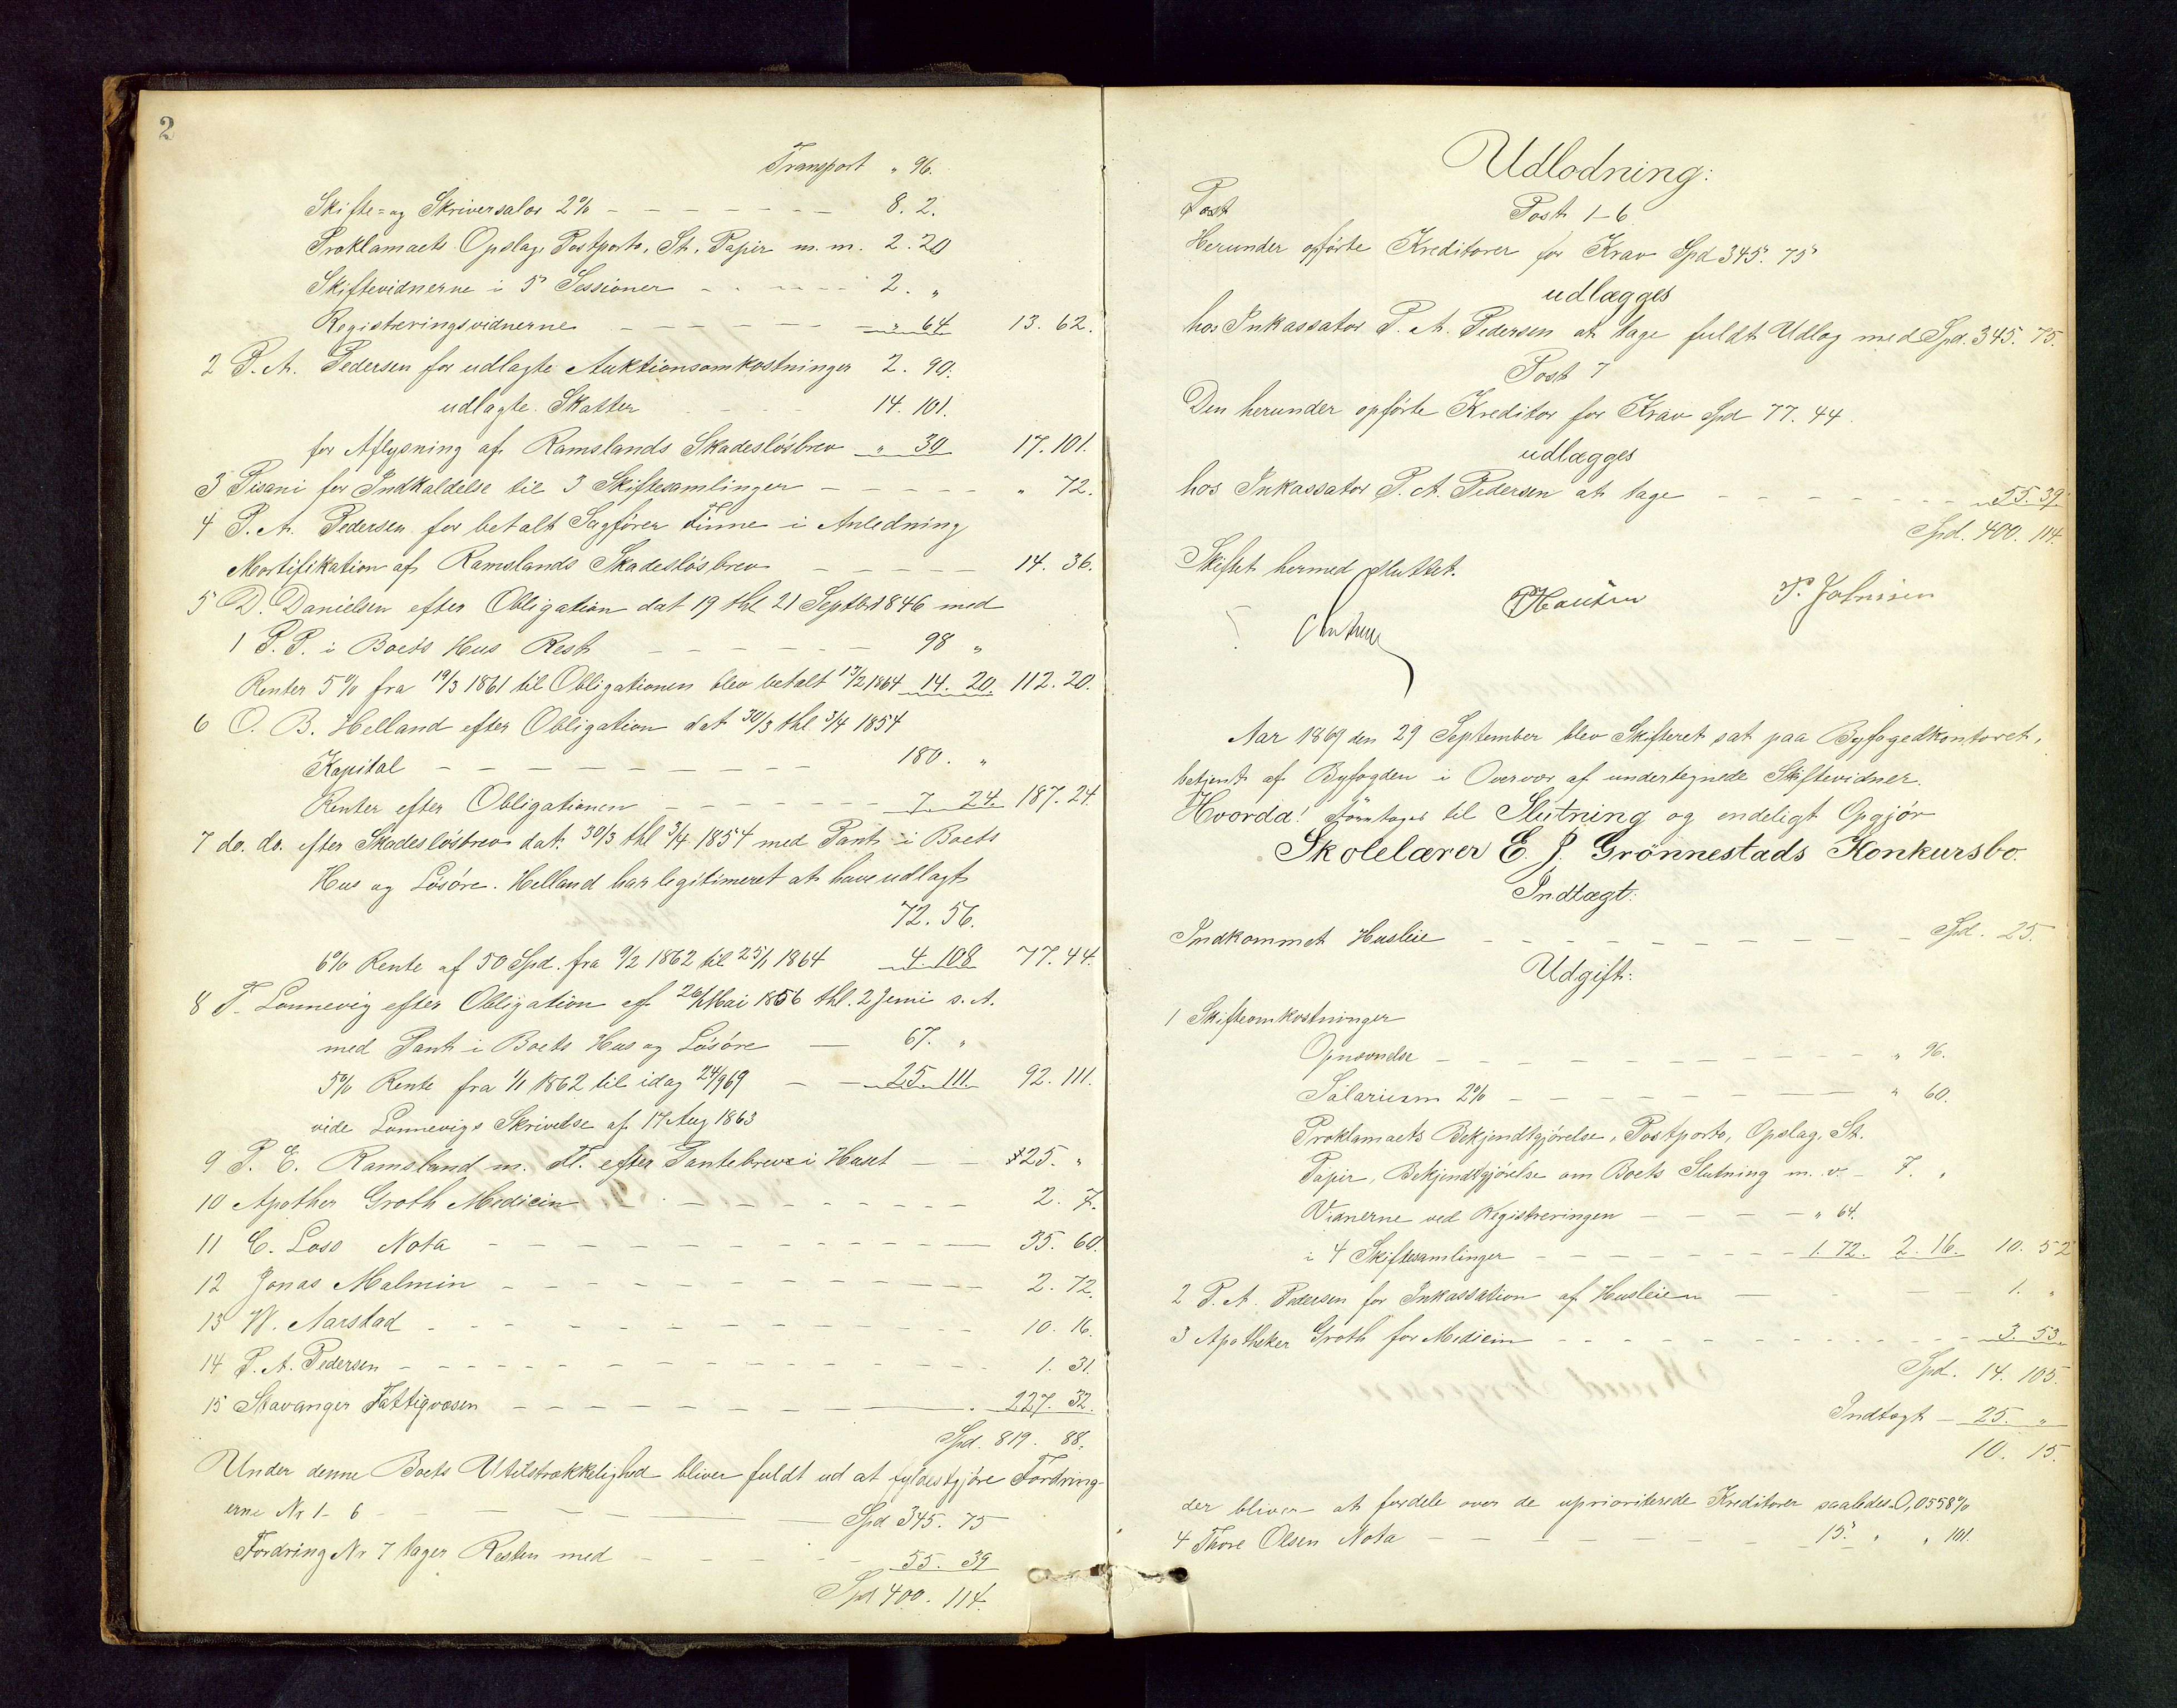 2
Transport " 96.
Skifte= og Skriversalær 2% - - - - - - - 8. 2.
Proklamaets Opslag, Postporto, St. Papir m. m. 2. 20
Skiftevidnerne i 5 Sessioner - - - - - 2. "
Registreringsvidnerne - - - - - - " 64 13. 62.
2 P. A. Pedersen for udlagte Auktionsomkostninger 2. 90.
udlagte Skatter - - - 14. 101.
for Aflysning af Ramslands Skadesløsbrev " 30 17. 101.
3 Pisani for Indkaldelse til 3 Skiftesamlinger - - - - - " 72.
4 P. A. Pedersen for betalt Sagfører Finne i Anledning
Mortifikation af Ramslands Skadesløsbrev - - - - - 14. 36.
5 D. Danielsen efter Obligation dat 19 thl 21 Septbr 1846 med
1 P. P. i Boets Hus Rest - - - - - - 98 "
Renter 5% fra 19/3 1861 til Obligationen blev betalt 17/2 1864 14. 20. 112. 20.
6 O. B. Helland efter Obligation dat 30/3 thl 3/4 1854
Kapital - - - - - - - - - 180. "
Renter efter Obligationen - - - - - - - 7. 24. 187. 24.
7 do. do. efter Skadesløsbrev dat. 30/3 thl 3/4 1854 med Pant i Boets
Hus og Løsøre. Helland har legitimeret at have udlagt
72. 56.
6% Rente af 50 Spd. fra 9/2 1862 til 25/1 1864 4. 108 77. 44.
8 T. Lonnevig efter Obligation af 26/ Mai 1856 thl. 2 Juni s. A.
med Pant i Boets Hus og Løsøre - 67. "
5% Rente fra 1/1 1862 til idag 24/9 69 - - 25. 111. 92. 111.
vide Lonnevigs Skrivelse af 17 Aug 1863
9 P. E. Ramsland m. Fl. efter Pantebreve i Huset - - 25. "
10 Apother Groth Medicin - - - - - - - 2. 7.
11 C. Loso Nota - - - - - - - - - - - 35. 60.
12 Jonas Malmin - - - - - - - - - - - 2. 72.
13 W. Aarstad - - - - - - - - - - - - 10. 16.
14 P. A. Pedersen - - - - - - - - - - - - 1. 31.
15 Stavanger Fattigvæsen - - - - - - - - - 227. 32.
Spd. 819. 88.
Under denne Boets Utilstrækkelighed bliver fuldt ud at fyldestgjøre Fordring-
erne Nr 1 - 6 - - - - - Spd 345. 75
Fordring Nr 7 tager Resten med - - - - - 55. 39
Spd 400. 114.
Udlodning:
Post Post 1-6
Herunder opførte Kreditorer for Krav Spd 345. 75
udlægges
hos Inkassator P. A. Pedersen at tage fuldt Udlæg med Spd. 345. 75.
Post 7
Den herunder opførte Kreditor for Krav Spd 77. 44.
udlægges
hos Inkassator P. A. Pedersen at tage - - - - - - - 55. 39.
Spd. 400. 114.
Skiftet hermed sluttet.
P. Johnsen
Aar 1869 den 29 September blev Skifteret sat paa Byfogedkontoret,
betjent af Byfogden i Overvær af undertegnede Skiftevidner.
Hvorda! foretoges til Slutning og endeligt Opgjør
Skolelærer E. J. Grönnestads Konkursbo.
Indtægt:
Indkommet Husleie - - - - - - - - - - - Spd. 25.
Udgift:
1 Skifteomkostninger
Opnævnelse - - - - - - - - - - " 96.
Salarium 2% - - - - - - - - " 60.
Proklamaets Bekjendtgjørelse, Postporto, Opslag, St.
Papir, Bekjendtgjørelse om Boets Slutning m. v. - 7. "
Vidnerne ved Registreringen - - - - - " 64.
i 4 Skiftesamlinger - - - - - - - 1. 72. 2. 16. 10. 52
2 P. A. Pedersen for Inkassation af Husleien - - - 1. "
3 Apotheker Groth for Medicin - - - - - - - - - - 3. 53.
Spd. 14. 105.
Indtægt - 25. "
10. 15.
der bliver at fordele over de uprioriterede Kreditorer saaledes 0,0558%
4 Thore Olsen Nota - - - - - - - 15. " " 101.